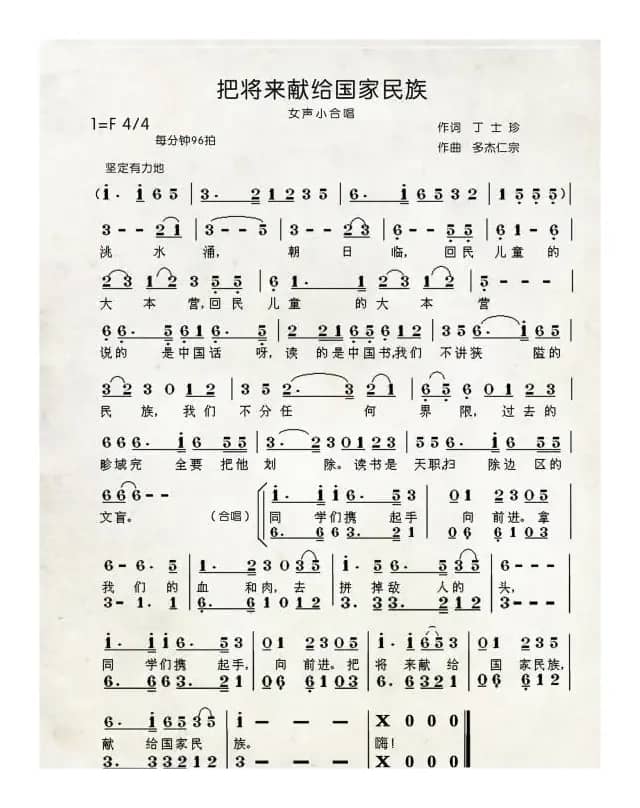 把将来献给国家民族
女声小合唱
1=F 4/4
每分钟96拍
作词 丁士珍
作曲 多杰仁宗
坚定有力地
(i· i 6 5 | 3· 2 1 2 3 5 | 6· i 6 5 3 2 | 1 5 5 5)|
3 - - 2 i | 3 - - 5 | 3 - - 2 3 | 6 - - 5 5 | 6 1 - 6 |
洮 水 涌, 朝 日 临, 回民 儿童 的
2 3 1 2 3 5 5 | 6 1· 1 | 2 3 1 2 | 5 - - - |
大 本 营,回民 儿童 的 大本 营
6 6· 5 6 1 6· 5 | 2 2 1 6 5 6 1 2 | 3 5 6· i | i 6 5 |
说的 是中国话 呀,读 的是中国书,我们 不讲狭 隘的
3 2 3 0 1 2 | 3 5 2· 3 | 2 1 | 6 5 6 0 1 2 3 |
民 族,我们 不分任 何 界 限,过去的
6 6 6· i 6 5 5 | 3· 2 3 0 1 2 3 | 5 5 6· i 5 5 |
畛域完 全要把他 划 除。读书是 天职,扫 除边区的
6 6 6 - - | i· i i 6· 5 3 | 0 1 2 3 0 5 |
文盲。 (合唱) 同 学们携 起手 向 前进。拿
6· 6 6 3 3· 2 1 | 0 6 6 1 0 3 |
6 - 6· 5 | 1· 2 3 0 3 5 | i· 5 6· 5 3 | 3 - - - |
我 们的 血 和肉,去 拼 掉敌 人的 头,
3 - 1· 1 | 6· 6 1 0 1 2 | 3· 3 3· 2 1 2 | 3 - - - |
i· i i 6· 5 3 | 0 1 2 3 0 5 | i· i 6 5 3 | 0 1 2 3 5 |
同 学们携 起手, 向 前进。把 将 来献给 国 家民族,
6· 6 6 3 3· 2 1 | 0 6 6 1 0 3 | 6· 6 3 2 1 | 0 6 6 1 2 |
6· i 6 5 3 5 | i - - - | X 0 0 0 |
献 给国家民 族。 嗨!
3· 3 3 2 1 2 | 3 - - - | X 0 0 0 |